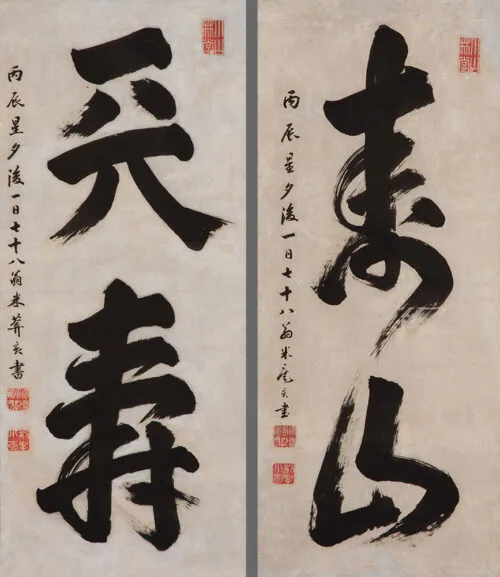 壽山
丙辰星夕後一日七十八翁米庵亥書
天壽
丙辰星夕後一日七十八翁米葊亥書